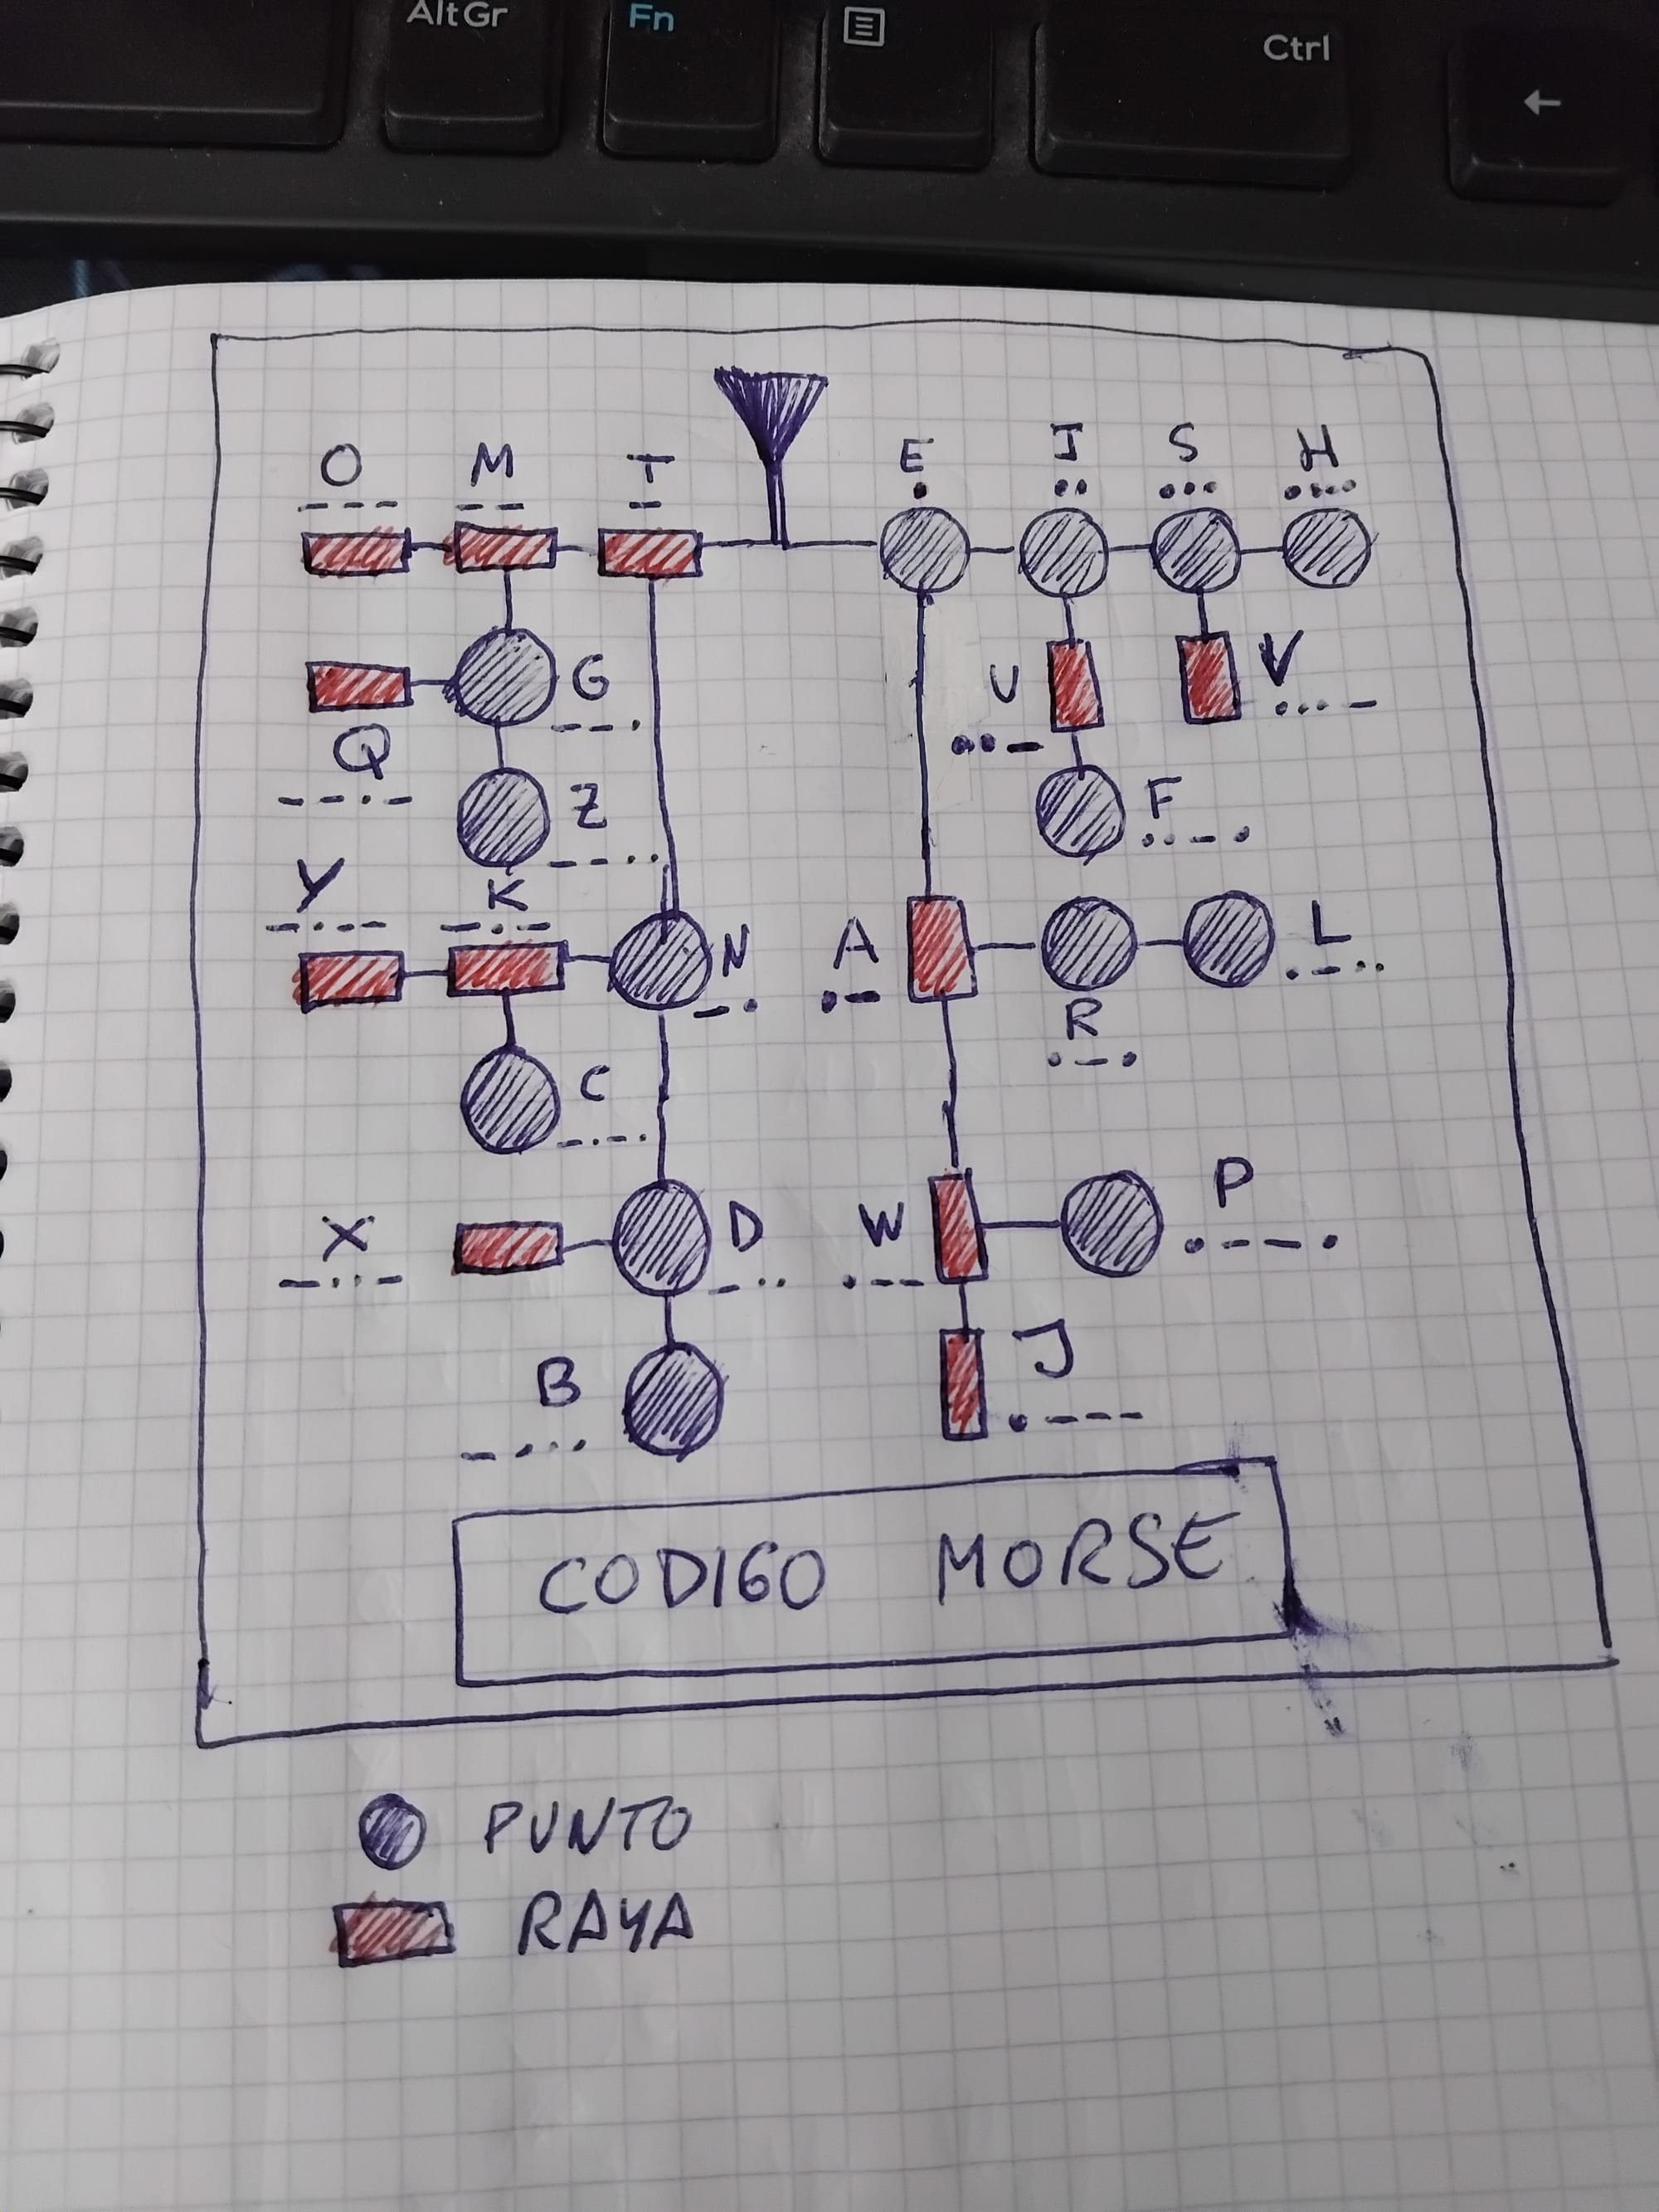 AltGr Fn Ctrl
←
O M T E I S H
--- -- - . .. ... ....
U V
G
--. ..- ...-
Q
--.- Z F
--.. ..-.
Y K
-.-- -.- N A L
-. .- .-..
R
.-.
C
-.-.
X D W P
-..- -.. .-- .--.
B J
-... .---
CODIGO MORSE
PUNTO
RAYA